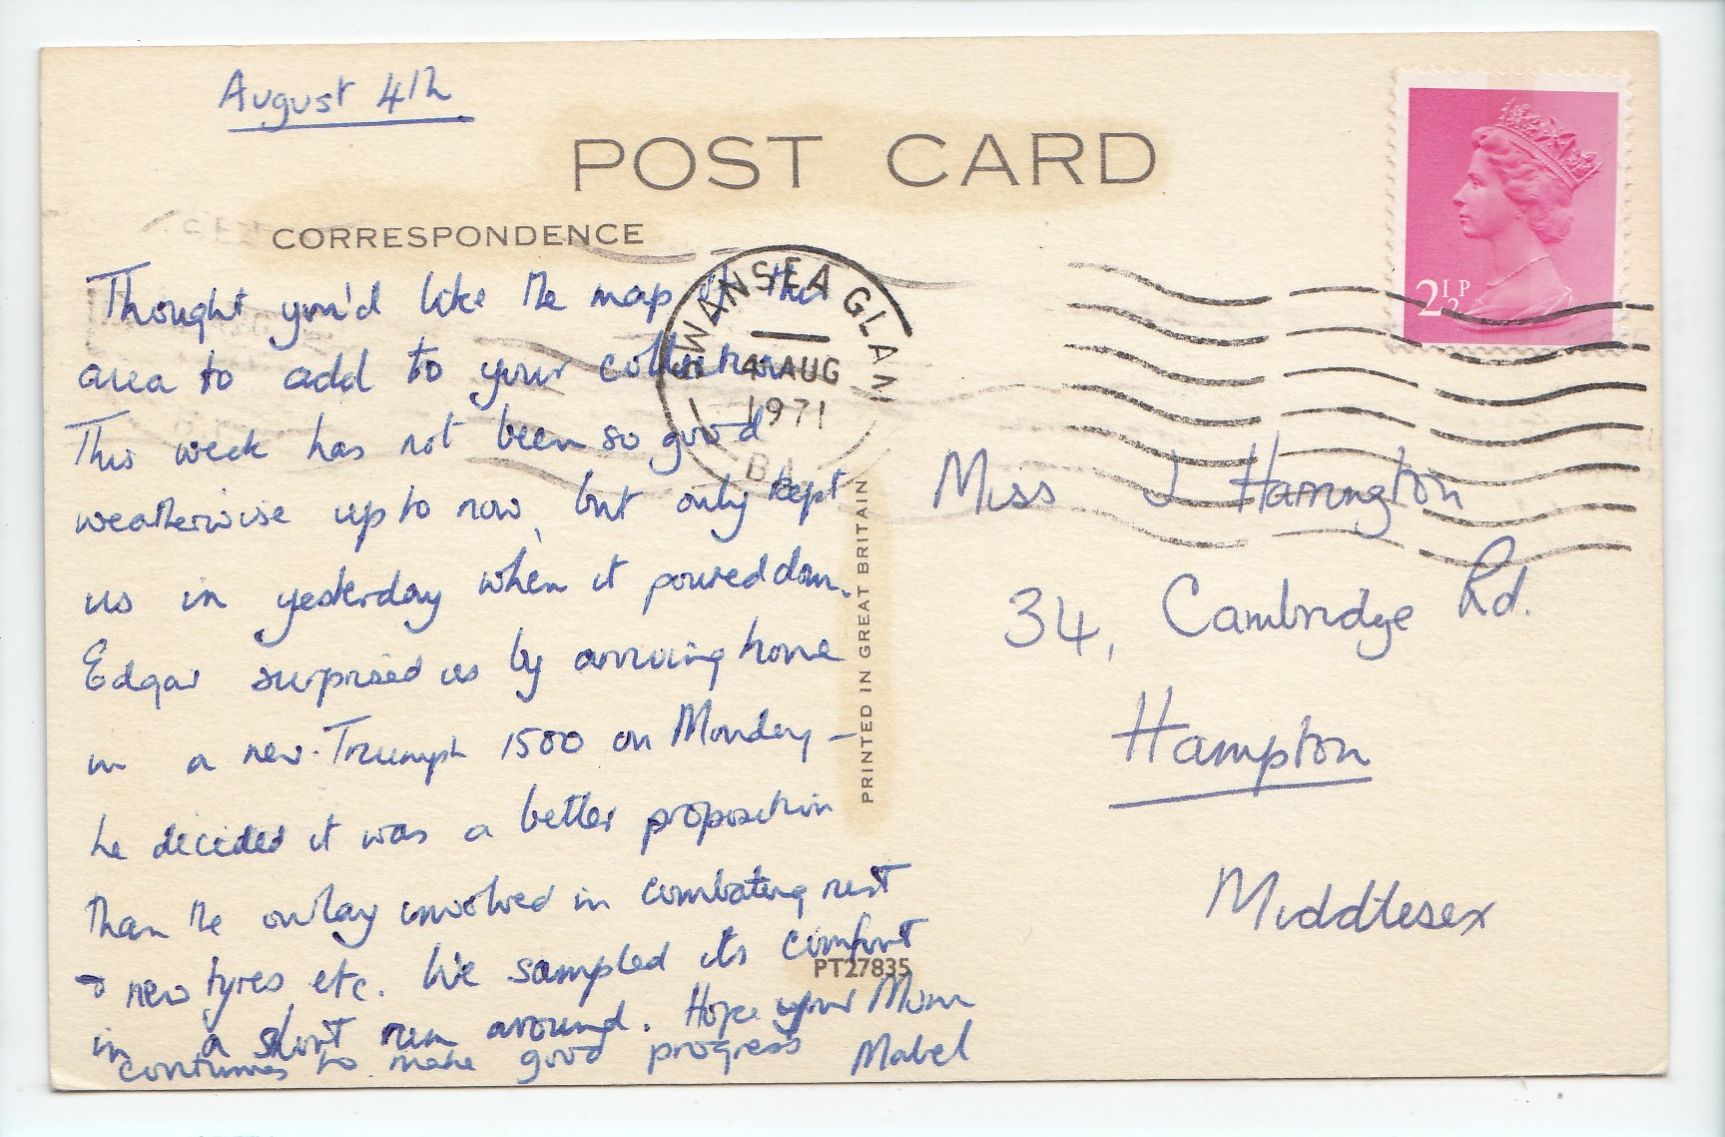 August 4th
POST CARD
CORRESPONDENCE
Thought you'd like the map of this
area to add to your collection.
This week has not been so good
weatherwise up to now, but only kept
us in yesterday when it poured down.
Edgar surprised us by arriving home
in a new Triumph 1500 on Monday –
he decided it was a better proposition
than the outlay involved in combating rust
& new tyres etc. We sampled its comfort
in a short run around. Hope your Mum
continues to make good progress Mabel
SWANSEA GLAM
4 AUG
1971
2½P
Miss J Harrington
34, Cambridge Rd.
Hampton
Middlesex
PRINTED IN GREAT BRITAIN
PT27835